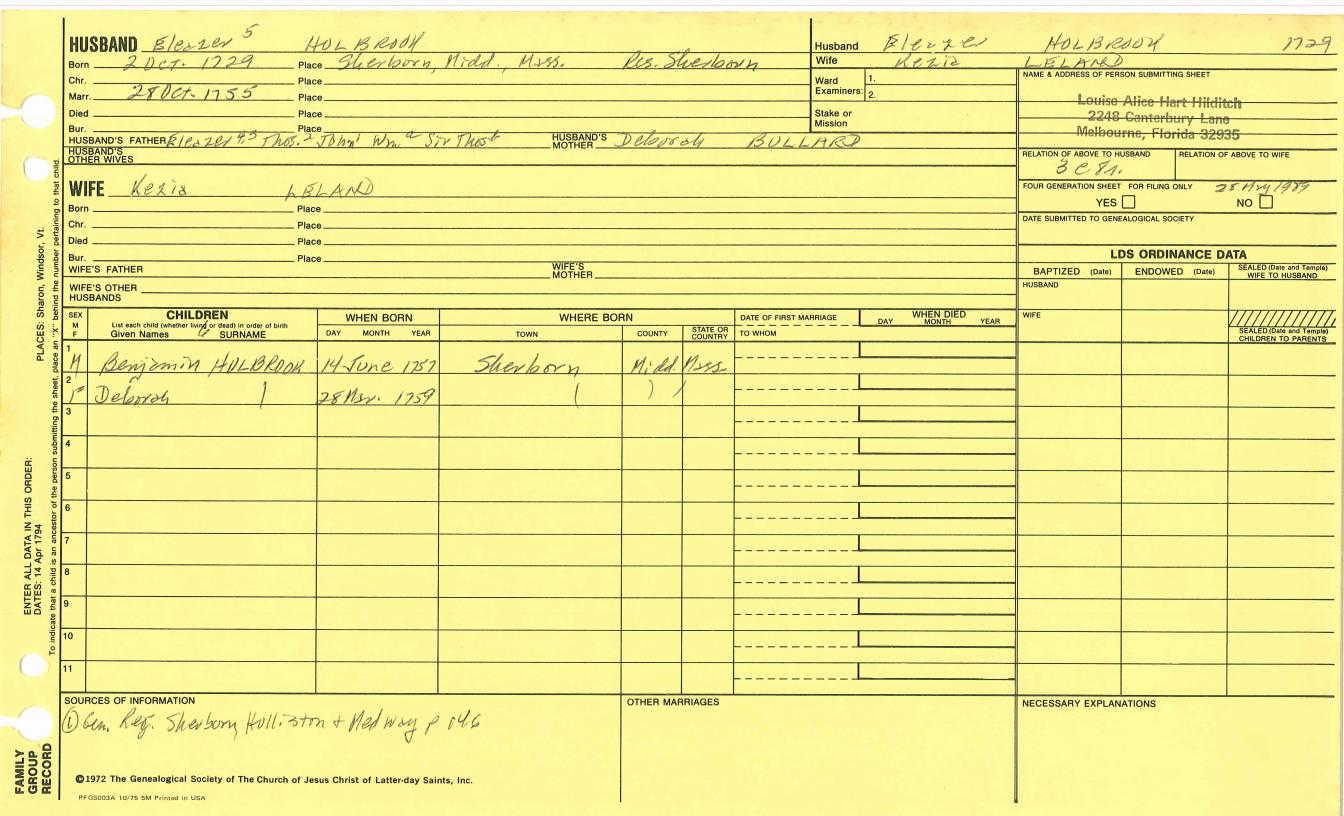 HUSBAND Eleazer 5 HOLBROOK
Born 2 Oct. 1729 Place Sherborn, Midd., Mass. Res. Sherborn
Chr. Place
Marr. 28 Oct. 1755 Place
Died Place
Bur. Place
HUSBAND'S FATHER Eleazer Thos. 2 John Wm. Sir Thos HUSBAND'S MOTHER Deborah BULLARD
HUSBAND'S OTHER WIVES
WIFE Kezia LELAND
Born Place
Chr. Place
Died Place
Bur. Place
WIFE'S FATHER WIFE'S MOTHER
WIFE'S OTHER HUSBANDS
Husband Eleazer HOLBROOK 1729
Wife Kezia LELAND
Ward Examiners: 1.
2.
Stake or Mission
NAME & ADDRESS OF PERSON SUBMITTING SHEET
Louise Alice Hart Hilditch
2248 Canterbury Lane
Melbourne, Florida 32935
RELATION OF ABOVE TO HUSBAND RELATION OF ABOVE TO WIFE
FOUR GENERATION SHEET FOR FILING ONLY 25 May 1989
YES NO
DATE SUBMITTED TO GENEALOGICAL SOCIETY
LDS ORDINANCE DATA
BAPTIZED (Date) ENDOWED (Date) SEALED (Date and Temple) WIFE TO HUSBAND
HUSBAND
WIFE
SEALED (Date and Temple) CHILDREN TO PARENTS
SEX M F CHILDREN WHEN BORN WHERE BORN DATE OF FIRST MARRIAGE WHEN DIED
List each child (whether living or dead) in order of birth
Given Names 6 SURNAME DAY MONTH YEAR TOWN COUNTY STATE OR COUNTRY TO WHOM DAY MONTH YEAR
1
M Benjamin HOLBROOK 14 June 1757 Sherborn Midd. Mass.
2
F Deborah 28 Mar. 1759
3
4
5
6
7
8
9
10
11
SOURCES OF INFORMATION
① Gen. Reg. Sherborn, Holliston & Medway p
OTHER MARRIAGES
NECESSARY EXPLANATIONS
©1972 The Genealogical Society of The Church of Jesus Christ of Latter-day Saints, Inc.
PFGS003A 10/75 5M Printed in USA
FAMILY GROUP RECORD
ENTER ALL DATA IN THIS ORDER:
DATES: 14 Apr 1794 PLACES: Sharon, Windsor, Vt.
To indicate that a child is an ancestor of the person submitting the sheet, place an "X" behind the number pertaining to that child.